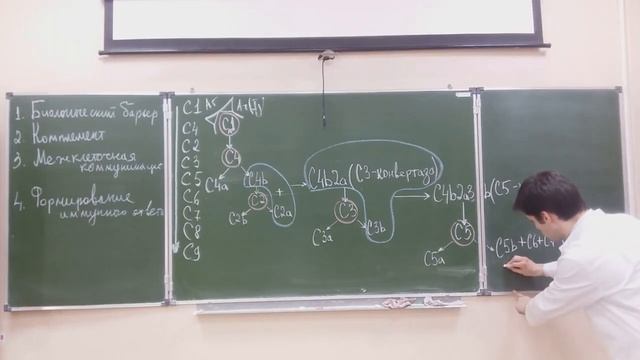 1. Биологический барьер
2. Комплемент
3. Межклеточная
коммуникация
4. Формирование
иммунного ответа
C1
C4
C2
C3
C5
C6
C7
C8
C9
C1
C4
C4a
C4b
+
C2
C2b
C2a
C4b2a (C3-конвертаза)
C3
C3a
C3b
C4b2a3b (C5-
C5
C5a
C5b + C6 +